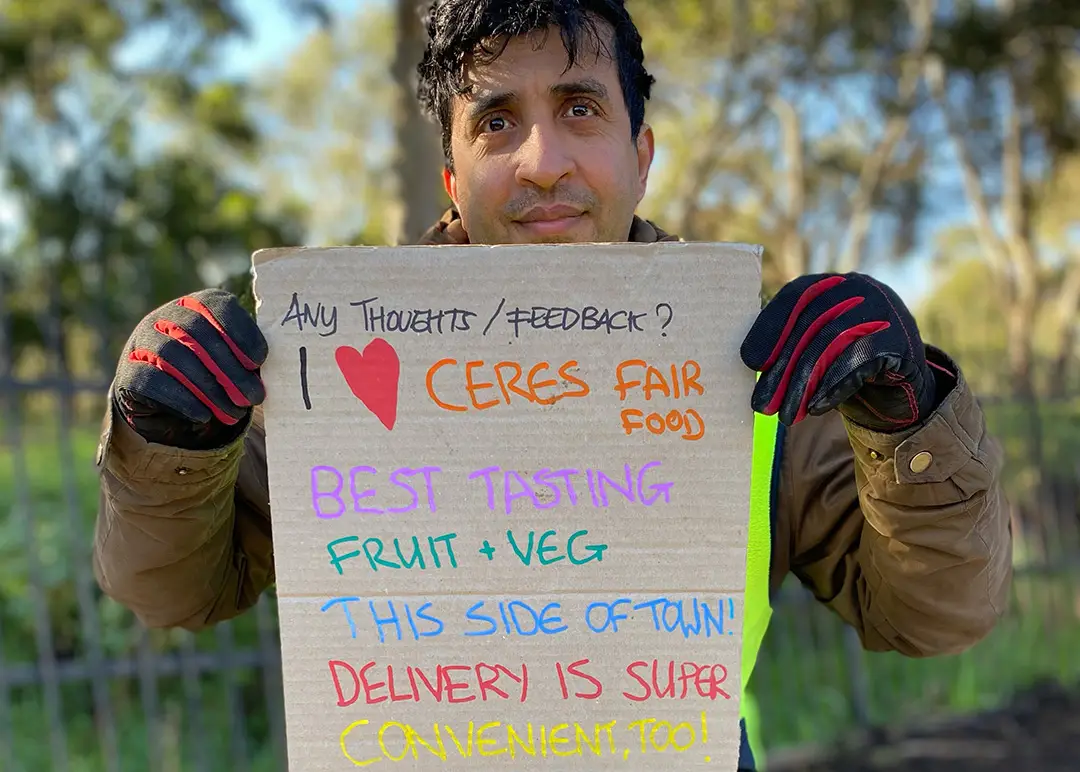 ANY THOUGHTS / FEEDBACK?
I ❤ CERES FAIR
FOOD
BEST TASTING
FRUIT + VEG
THIS SIDE OF TOWN!
DELIVERY IS SUPER
CONVENIENT, TOO!